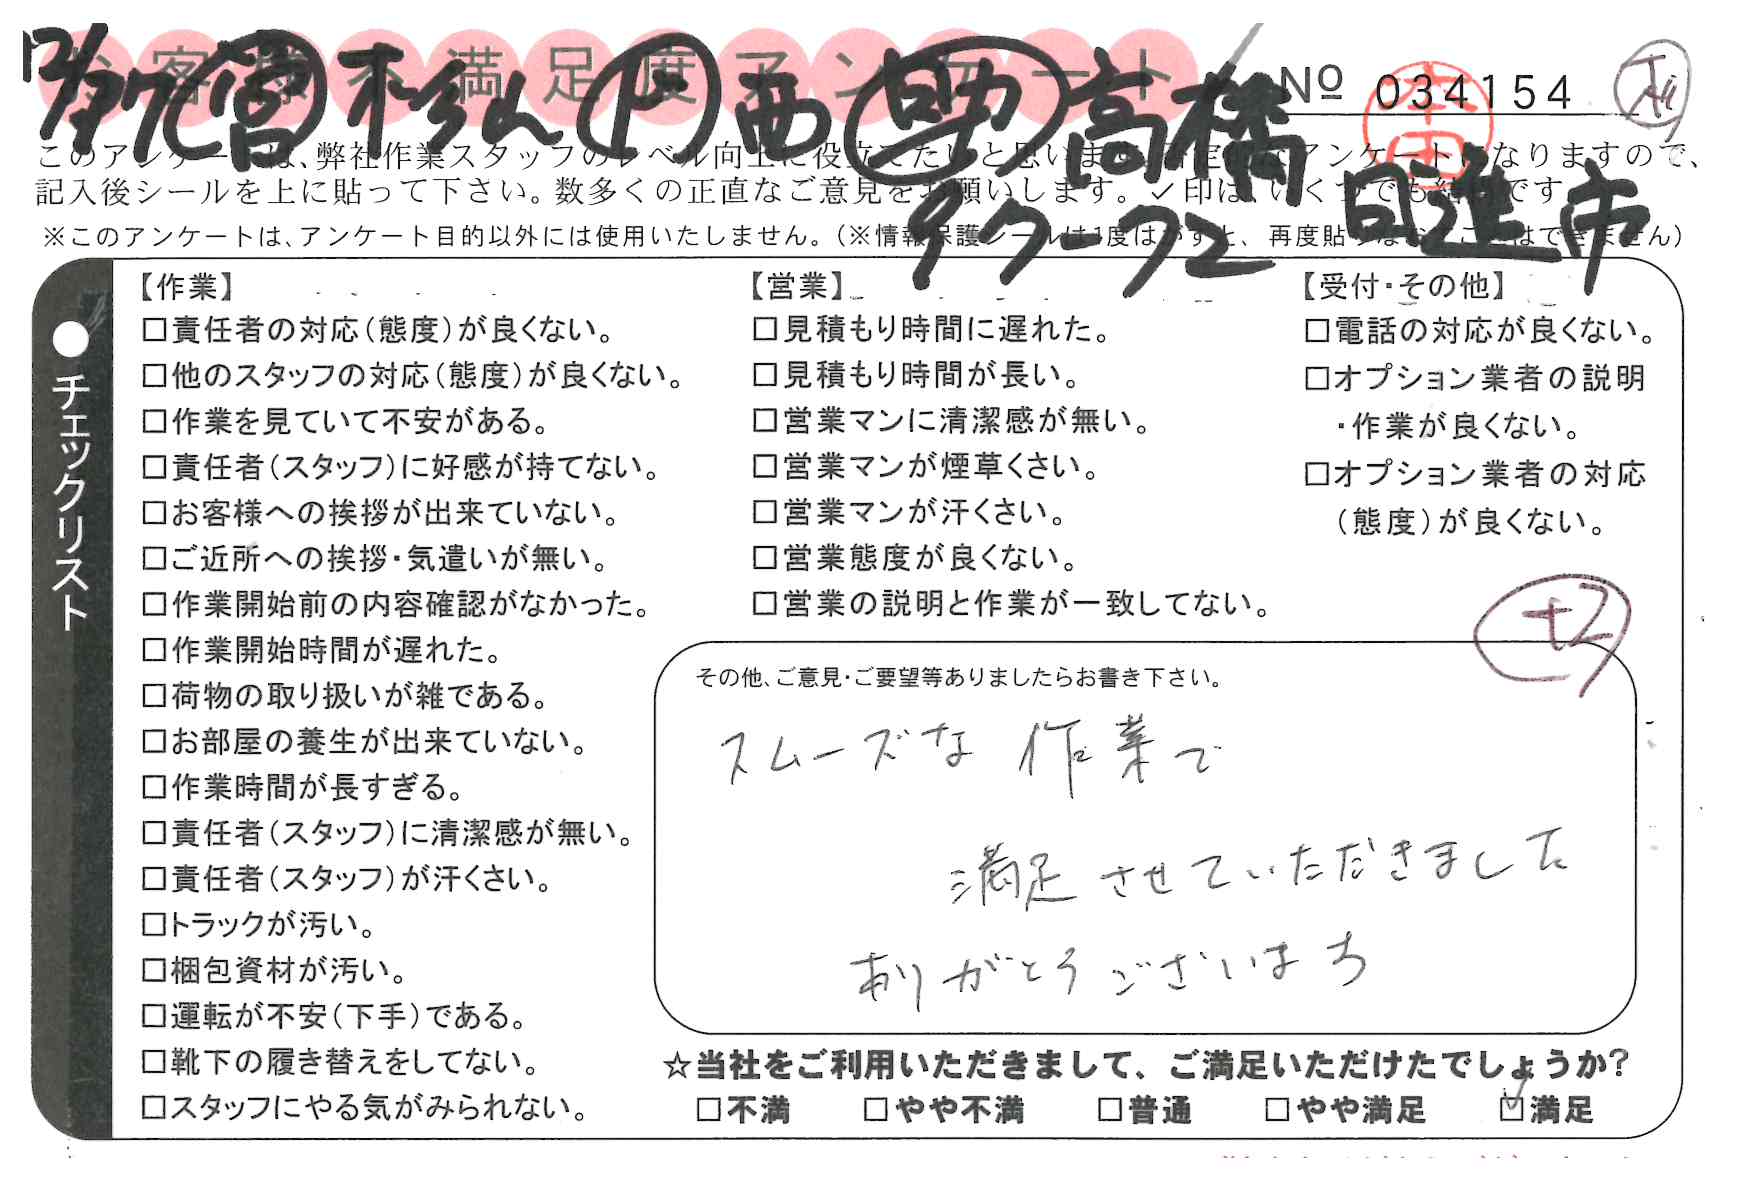 お客様不満足度アンケート
№ 034154
本田
高橋
日進市
このアンケートは、弊社作業スタッフのレベル向上に役立てたいと思います。否定的なアンケートになりますので、
記入後シールを上に貼って下さい。数多くの正直なご意見をお願いします。✓印は、いくつでも結構です。
※このアンケートは、アンケート目的以外には使用いたしません。（※情報保護シールは1度はがすと、再度貼りなおすことはできません）
●チェックリスト
【作業】
□責任者の対応（態度）が良くない。
□他のスタッフの対応（態度）が良くない。
□作業を見ていて不安がある。
□責任者（スタッフ）に好感が持てない。
□お客様への挨拶が出来ていない。
□ご近所への挨拶・気遣いが無い。
□作業開始前の内容確認がなかった。
□作業開始時間が遅れた。
□荷物の取り扱いが雑である。
□お部屋の養生が出来ていない。
□作業時間が長すぎる。
□責任者（スタッフ）に清潔感が無い。
□責任者（スタッフ）が汗くさい。
□トラックが汚い。
□梱包資材が汚い。
□運転が不安（下手）である。
□靴下の履き替えをしてない。
□スタッフにやる気がみられない。
【営業】
□見積もり時間に遅れた。
□見積もり時間が長い。
□営業マンに清潔感が無い。
□営業マンが煙草くさい。
□営業マンが汗くさい。
□営業態度が良くない。
□営業の説明と作業が一致してない。
【受付・その他】
□電話の対応が良くない。
□オプション業者の説明
・作業が良くない。
□オプション業者の対応
（態度）が良くない。
その他、ご意見・ご要望等ありましたらお書き下さい。
スムーズな 作業で
満足させていただきました
ありがとうございます
☆当社をご利用いただきまして、ご満足いただけたでしょうか？
□不満 □やや不満 □普通 □やや満足 ☑満足